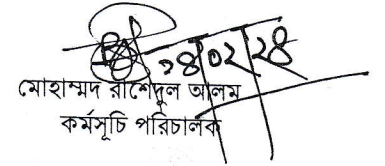 ১৪/০২/২৪
মোহাম্মদ রাশেদুল আলম
কর্মসূচি পরিচালক